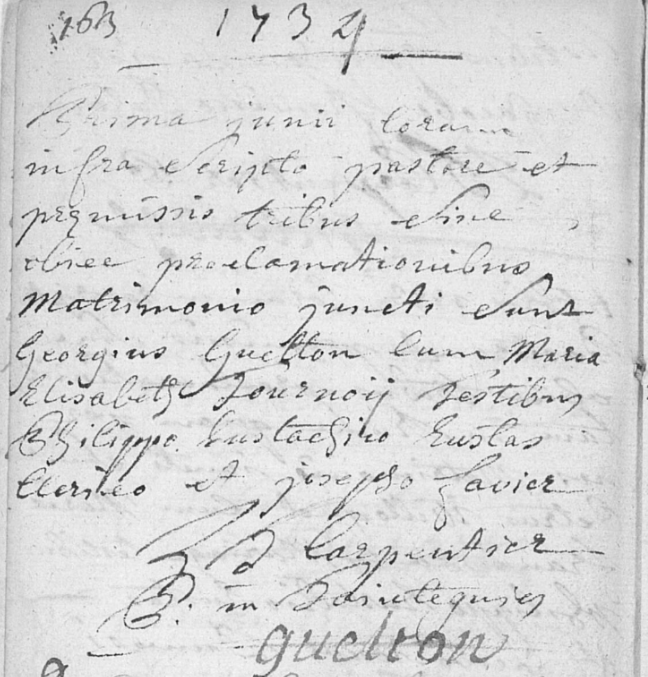 163 1732
Prima junii coram
infra scripto pastore et
premissis tribus sine
obice proclamationibus
Matrimonio juncti sunt
Georgius Guelton cum Maria
Elisabeth Tournoij Testibus
Philippo Eustachio Eustas
Clerico et josepho Xavier
J d Carpentier
P. in Sainteguies
guelton